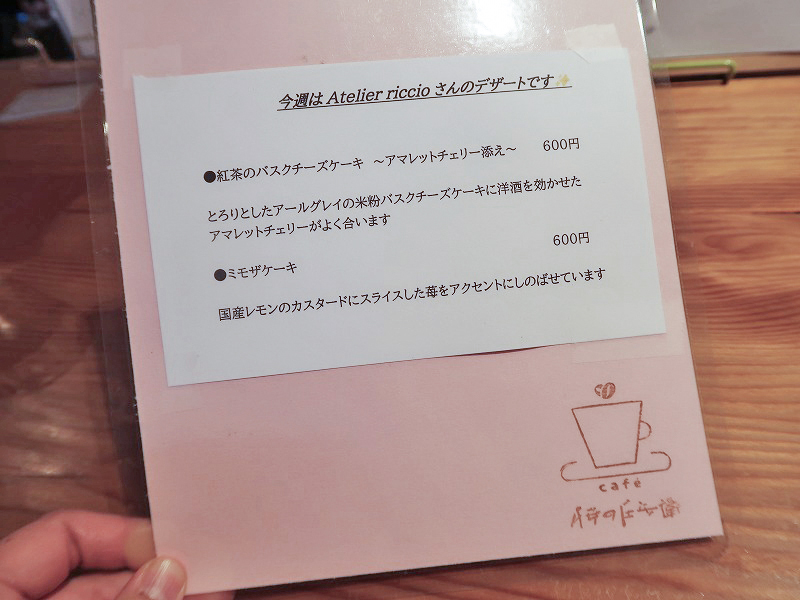 今週は Atelier riccio さんのデザートです✨
●紅茶のバスクチーズケーキ ～アマレットチェリー添え～ 600円
とろりとしたアールグレイの米粉バスクチーズケーキに洋酒を効かせた
アマレットチェリーがよく合います
●ミモザケーキ 600円
国産レモンのカスタードにスライスした苺をアクセントにしのばせています
café